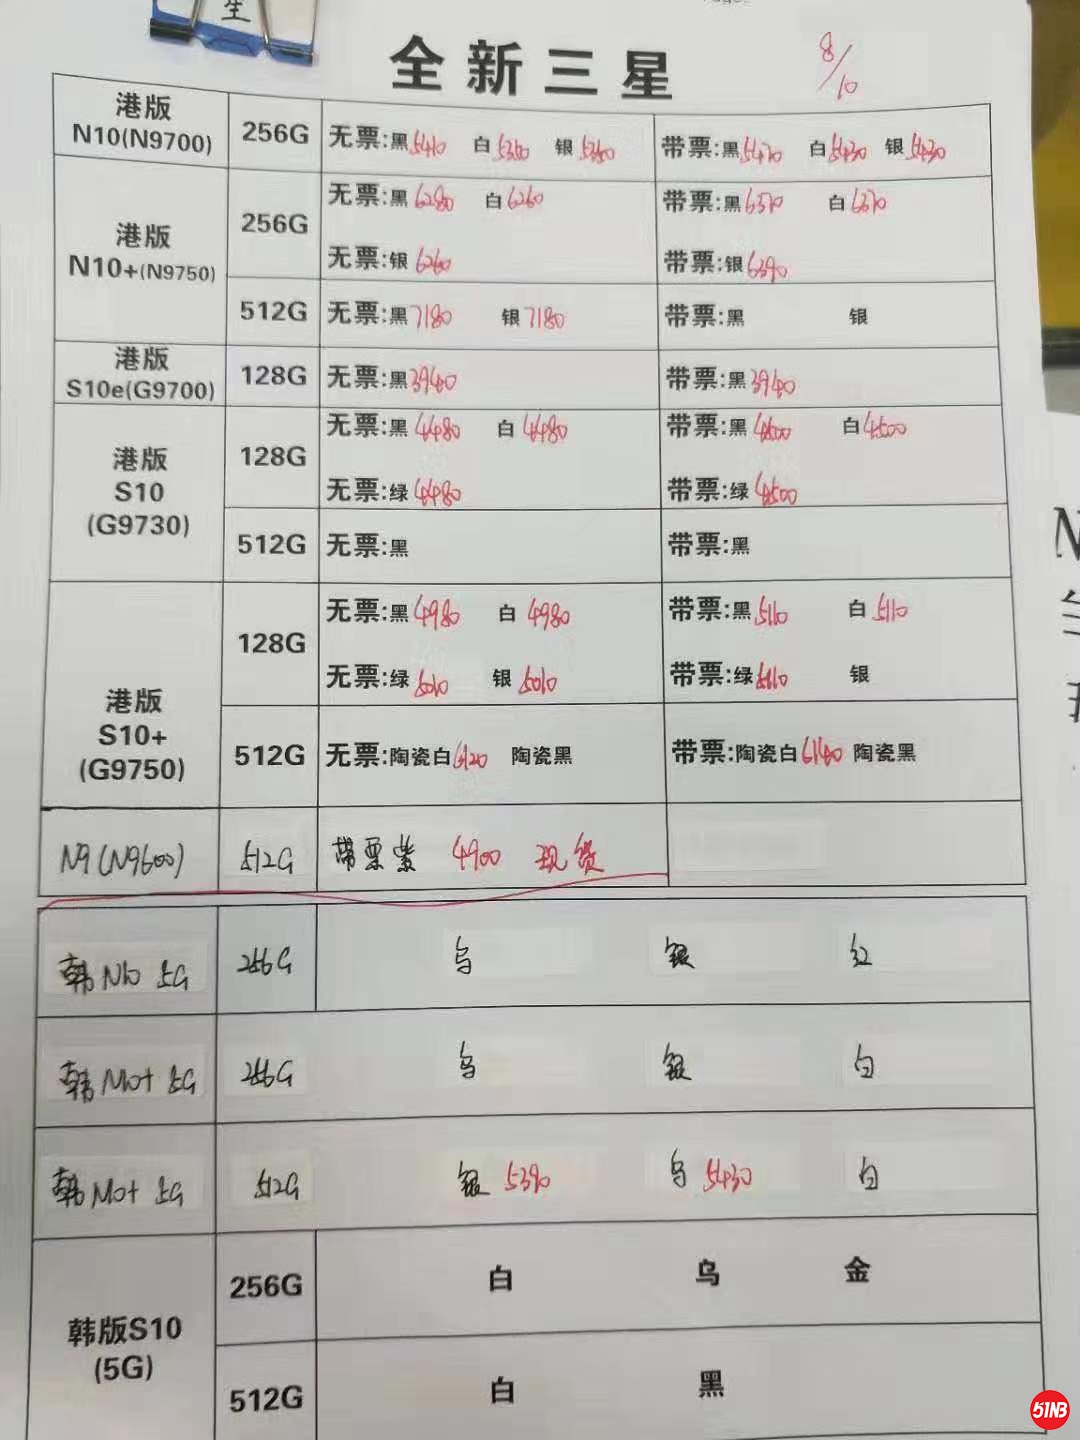 生
全新三星
8/10
港版
N10(N9700)
256G
无票:黑5410 白5360 银5380
带票:黑5420 白5430 银5430
港版
N10+(N9750)
256G
无票:黑6280 白6260
带票:黑6370 白6370
无票:银6260
带票:银6390
512G
无票:黑7180 银7180
带票:黑 银
港版
S10e(G9700)
128G
无票:黑3940
带票:黑3940
港版
S10
(G9730)
128G
无票:黑4480 白4480
带票:黑4600 白4500
无票:绿4480
带票:绿4500
512G
无票:黑
带票:黑
港版
S10+
(G9750)
128G
无票:黑4980 白4980
带票:黑5110 白5110
无票:绿5010 银5010
带票:绿5110 银
512G
无票:陶瓷白6120 陶瓷黑
带票:陶瓷白6140 陶瓷黑
N9(N9600) 512G 带票紫 4900 现货
韩N10 5G 256G 乌 银 红
韩N10+ 5G 256G 乌 银 白
韩N10+ 5G 512G 银5390 乌5430 白
韩版S10
(5G)
256G 白 乌 金
512G 白 黑
51NB